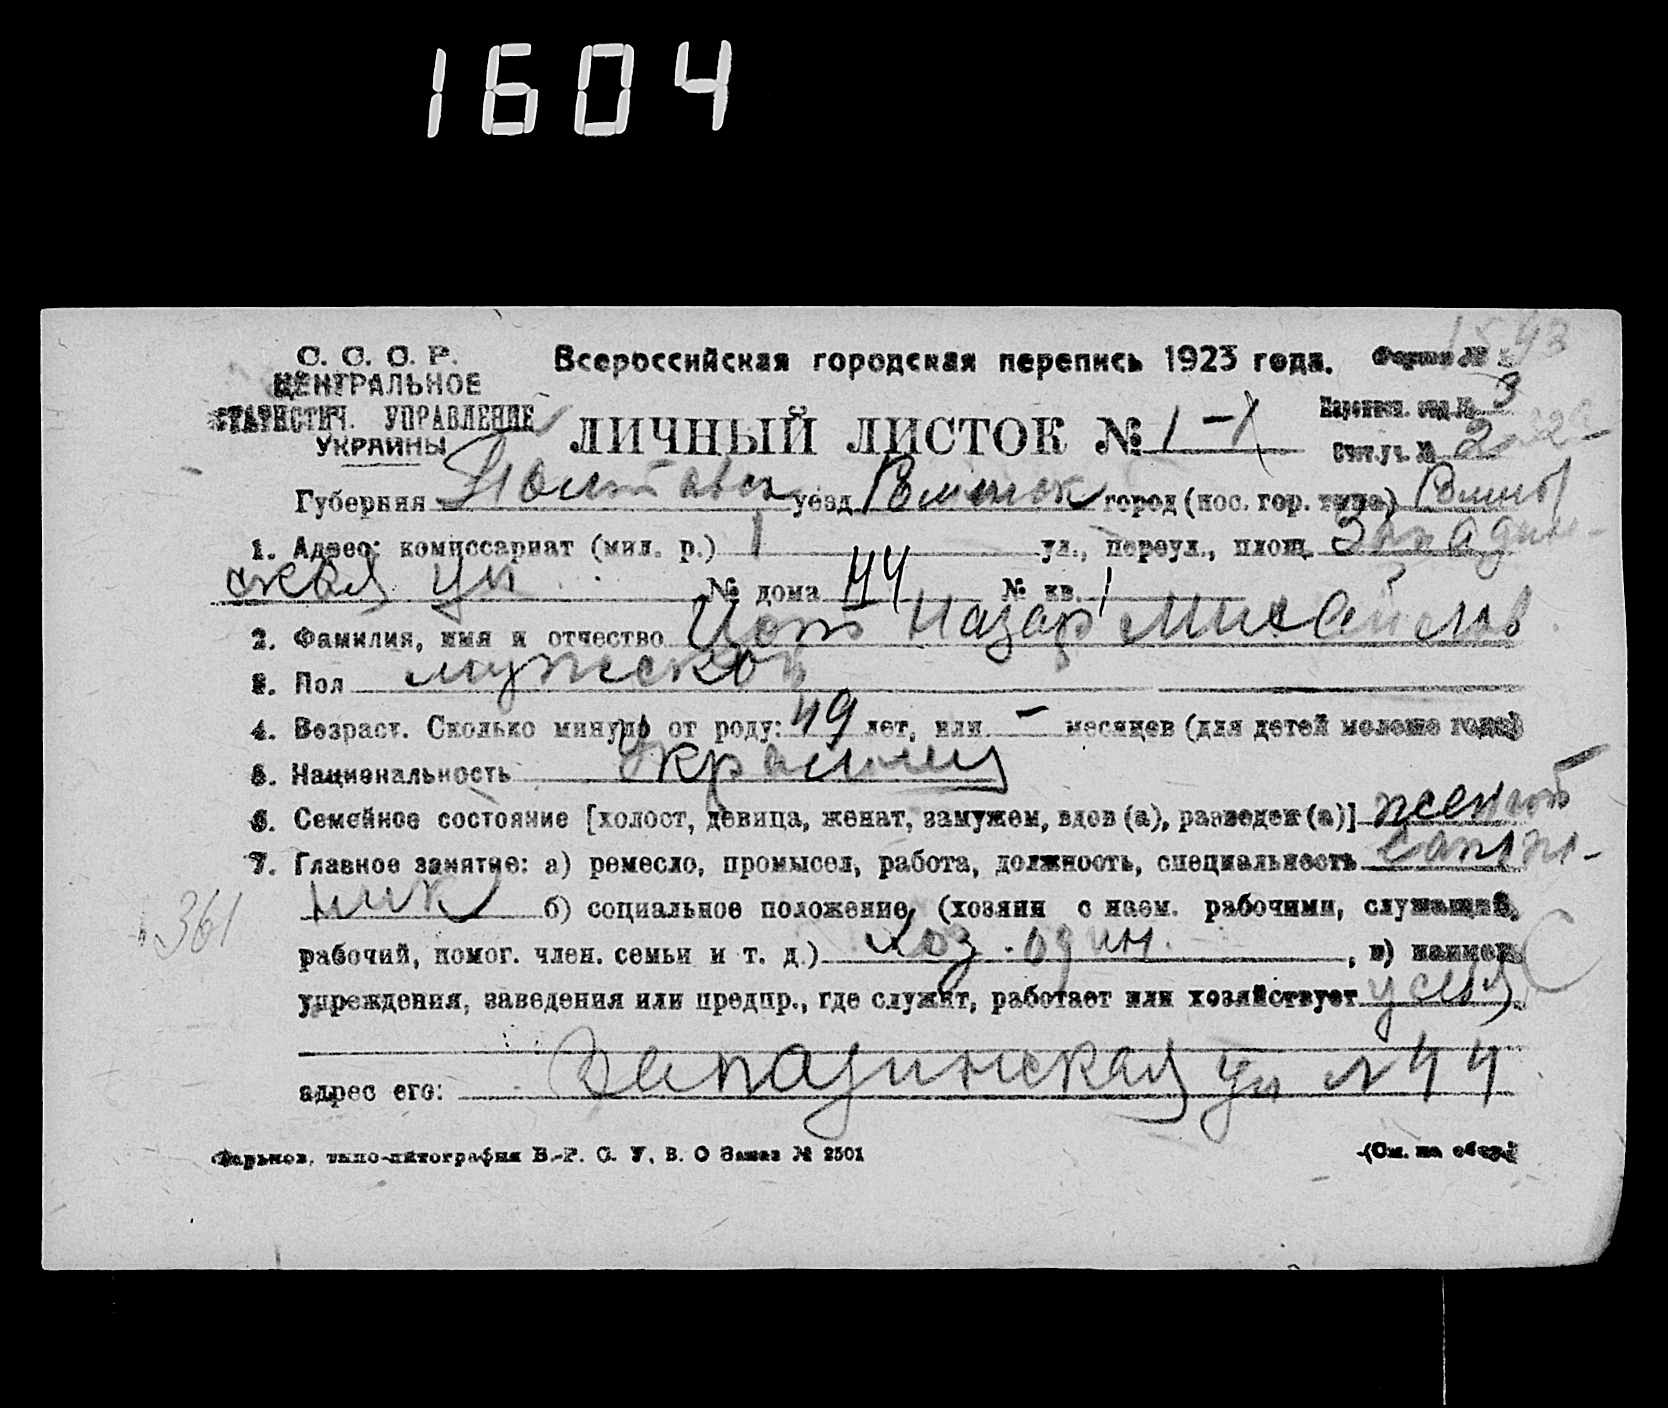 1604
С. С. С. Р.
ЦЕНТРАЛЬНОЕ
СТАТИСТИЧ. УПРАВЛЕНИЕ
УКРАИНЫ
Всероссийская городская перепись 1923 года.
Форма №
ЛИЧНЫЙ ЛИСТОК № 1
3
Счет. уч. № 2
Губерния Полтавск уезд Роменск город (пос. гор. типа) Ромны
1. Адрес: комиссариат (мил. р.) 1 ул., переул., площ. Западин-
ская ул № дома 44 № кв. 1
2. Фамилия, имя и отчество Назар Михайлов
3. Пол мужской
4. Возраст. Сколько минуло от роду: 49 лет, или — месяцев (для детей моложе года)
5. Национальность Украинец
6. Семейное состояние [холост, девица, женат, замужем, вдов (а), разведен (а)] женат
7. Главное занятие: а) ремесло, промысел, работа, должность, специальность сапож-
ник б) социальное положение, (хозяин с наем. рабочими, служащий,
361
рабочий, помог. член. семьи и т. д.) хоз. один. , в) наимен.
учреждения, заведения или предпр., где служит, работает или хозяйствует у себя
адрес его: Западинская ул № 44
Харьков, типо-литография В.-Р. С. У. В. О Заказ № 2501
(См. на обор.)